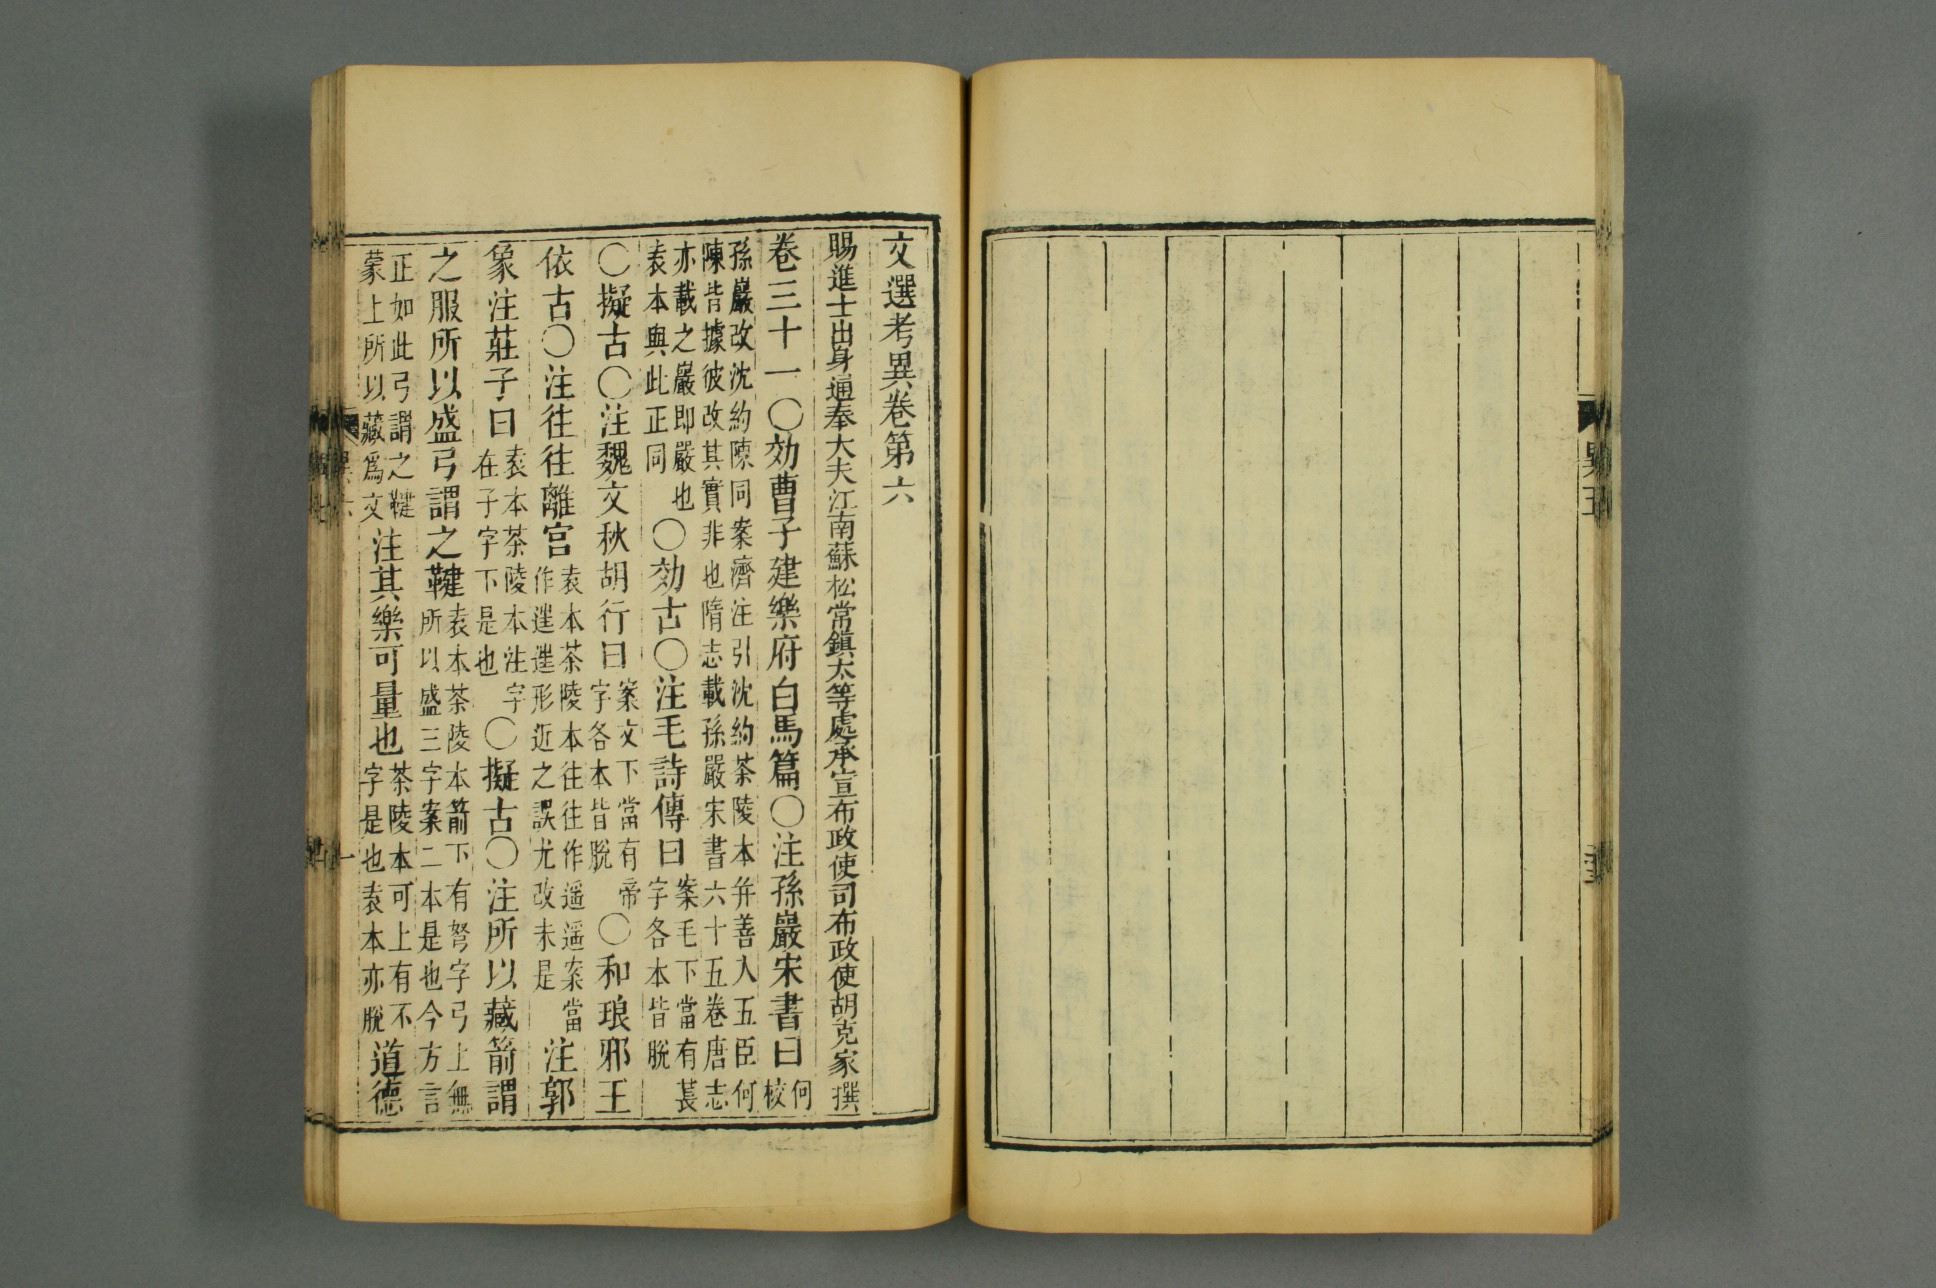 異五
文選考異卷第六
賜進士出身通奉大夫江南蘇松常鎮太等處承宣布政使司布政使胡克家撰
卷三十一〇効曹子建樂府白馬篇〇注孫巖宋書曰何校
孫巖改沈約陳同案濟注引沈約茶陵本并善入五臣何
陳皆據彼改其實非也隋志載孫嚴宋書六十五卷唐志
亦載之巖即嚴也袁本與此正同〇効古〇注毛詩傳曰案毛下當有萇字各本皆脫
〇擬古〇注魏文秋胡行曰案文下當有帝字各本皆脫〇和琅邪王
依古〇注往往離宮袁本茶陵本往往作遥遥案當作形近之誤尤改未是注郭
象注莊子曰袁本茶陵本注字在子字下是也〇擬古〇注所以藏箭謂
之服所以盛弓謂之鞬袁本茶陵本箭下有弩字弓上無所以盛三字案二本是也今方言
正如此弓謂之鞬蒙上所以藏爲文注其樂可量也茶陵本可上有不字是也袁本亦脫道德